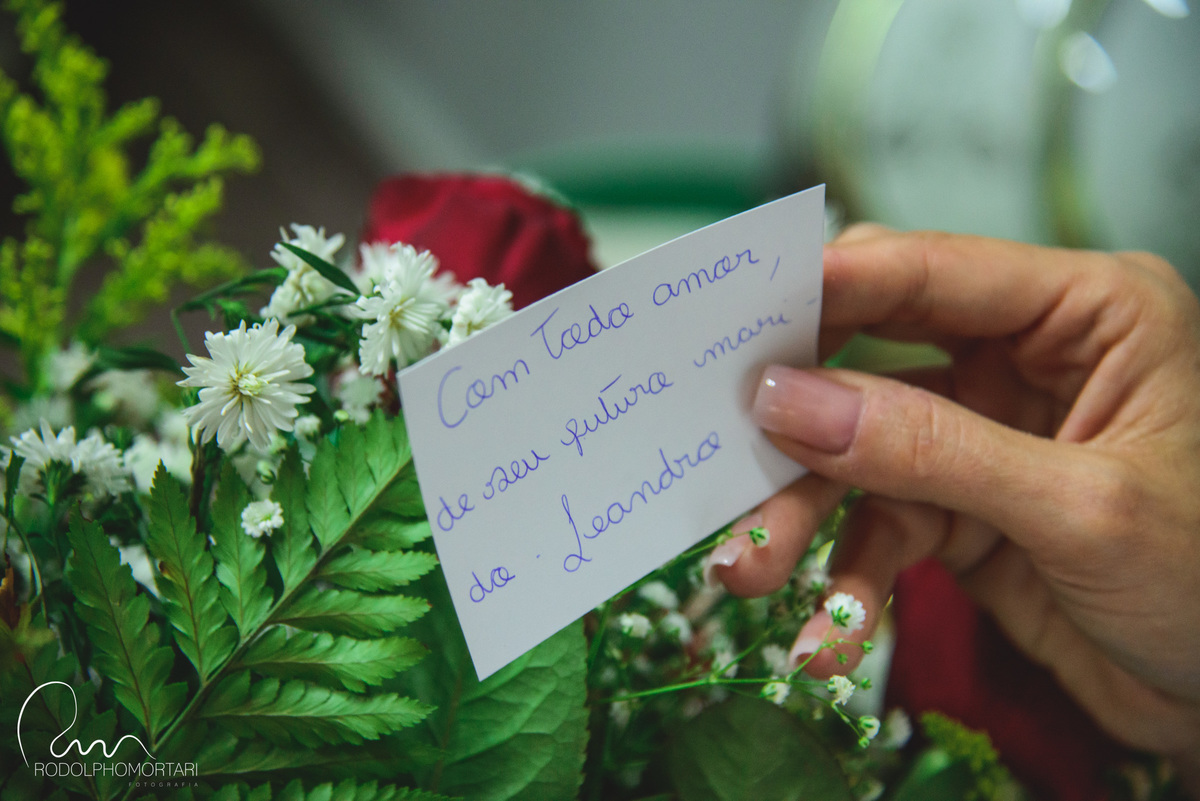 Com Todo amor,
de seu futuro mari-
do. Leandro
RODOLPHOMORTARI
FOTOGRAFIA